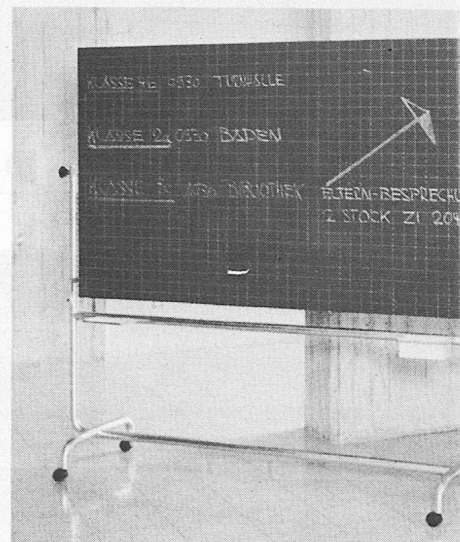 KLASSE 4E 0830 TURNHALLE
KLASSE 2 0930 BADEN
KLASSE 1030 BIBLIOTHEK
ELTERN-BESPRECHU
2 STOCK ZI 204